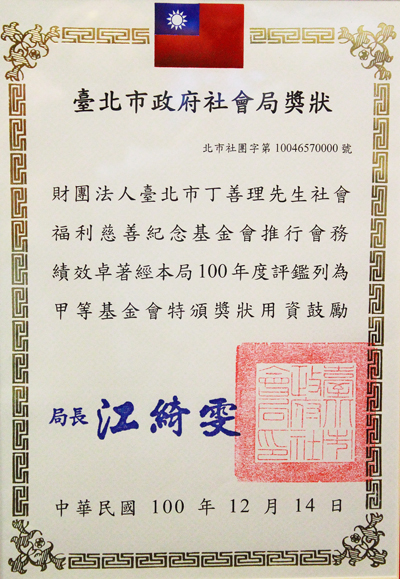 臺北市政府社會局獎狀
北市社團字第10046570000號
財團法人臺北市丁善理先生社會
福利慈善紀念基金會推行會務
績效卓著經本局100年度評鑑列為
甲等基金會特頒獎狀用資鼓勵
局長 江綺雯
臺北市政府社會局印
中華民國 100 年 12 月 14 日